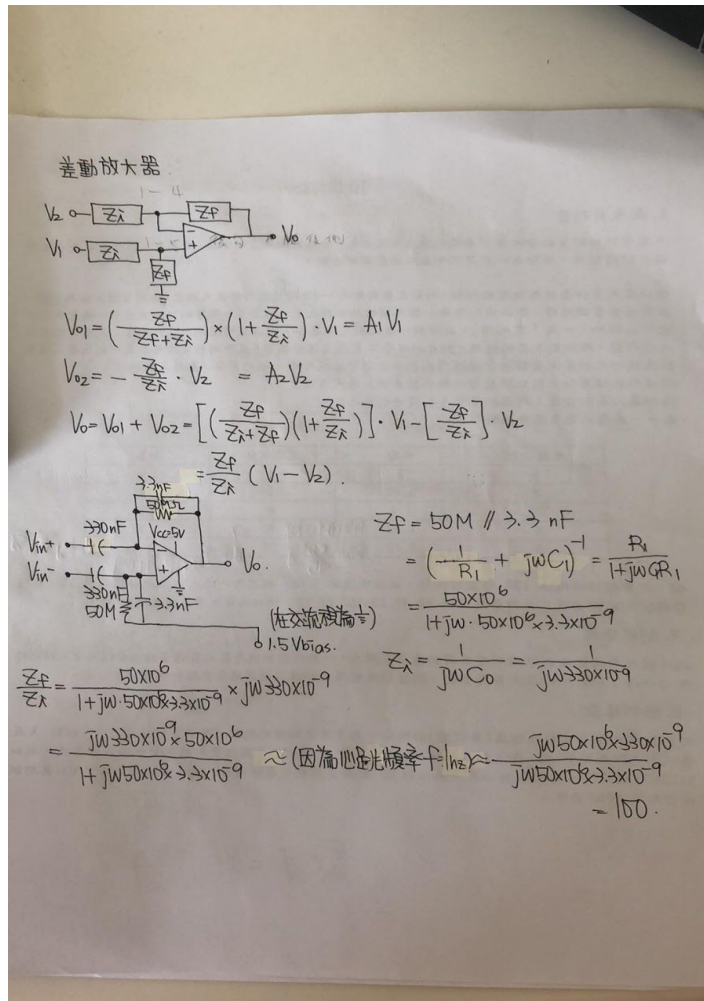 差動放大器
V₂ Zi Zf
V₁ Zi - + Vo
Zf
Vo1 = (Zf/(Zf+Zi)) × (1 + Zf/Zi) · V₁ = A₁V₁
Vo2 = - Zf/Zi · V₂ = A₂V₂
Vo = Vo1 + Vo2 = [(Zf/(Zi+Zf))(1 + Zf/Zi)] · V₁ - [Zf/Zi] · V₂
= Zf/Zi (V₁ - V₂).
3.3nF
330nF Vcc=5V
Vin+ - Vo.
Vin- +
330nF
50M 3.3nF
1.5Vbias.
Zf = 50M // 3.3 nF
= (1/R₁ + jwC₁)⁻¹ = R₁/(1+jwC₁R₁)
= 50×10⁶/(1+jw·50×10⁶×3.3×10⁻⁹)
Zi = 1/(jwC₀) = 1/(jw330×10⁻⁹)
Zf/Zi = 50×10⁶/(1+jw·50×10⁶×3.3×10⁻⁹) × jw330×10⁻⁹
= (jw330×10⁻⁹×50×10⁶)/(1+jw50×10⁶×3.3×10⁻⁹) ≈ (因為心跳頻率f=1hz) ≈ (jw50×10⁶×330×10⁻⁹)/(jw50×10⁶×3.3×10⁻⁹)
= 100.